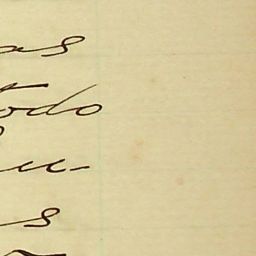 as
todo
u-
s